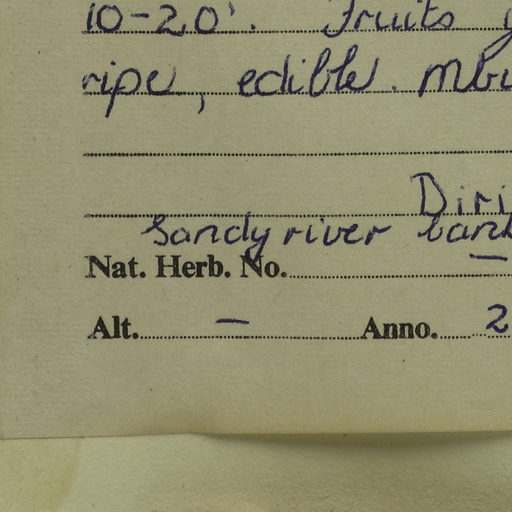 10-20'. Fruits
ripe, edible.
Diri
Sandy river bank
Nat. Herb. No. —
Alt. — Anno. 2